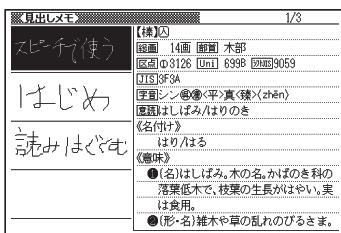 見出しメモ 1/3
スピーチで使う
はじめ
読みはぐくむ
【榛】人
総画 14画 部首 木部
区点 3126 Uni 699B シフトJIS 9059
JIS 3F3A
字音 シン 呉 漢〈平〉真〈臻〉〈zhēn〉
意読 はしばみ/はりのき
《名付け》
はり/はる
《意味》
❶(名)はしばみ。木の名。かばのき科の
落葉低木で、枝葉の生長がはやい。実
は食用。
❷(形・名)雑木や草の乱れのびるさま。